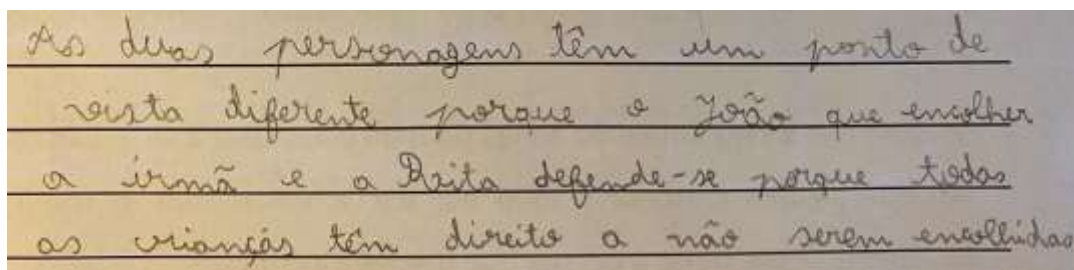 As duas personagens têm um ponto de
vista diferente porque o João que encolher
a irmã e a Rita defende-se porque todas
as crianças têm direito a não serem encolhidas